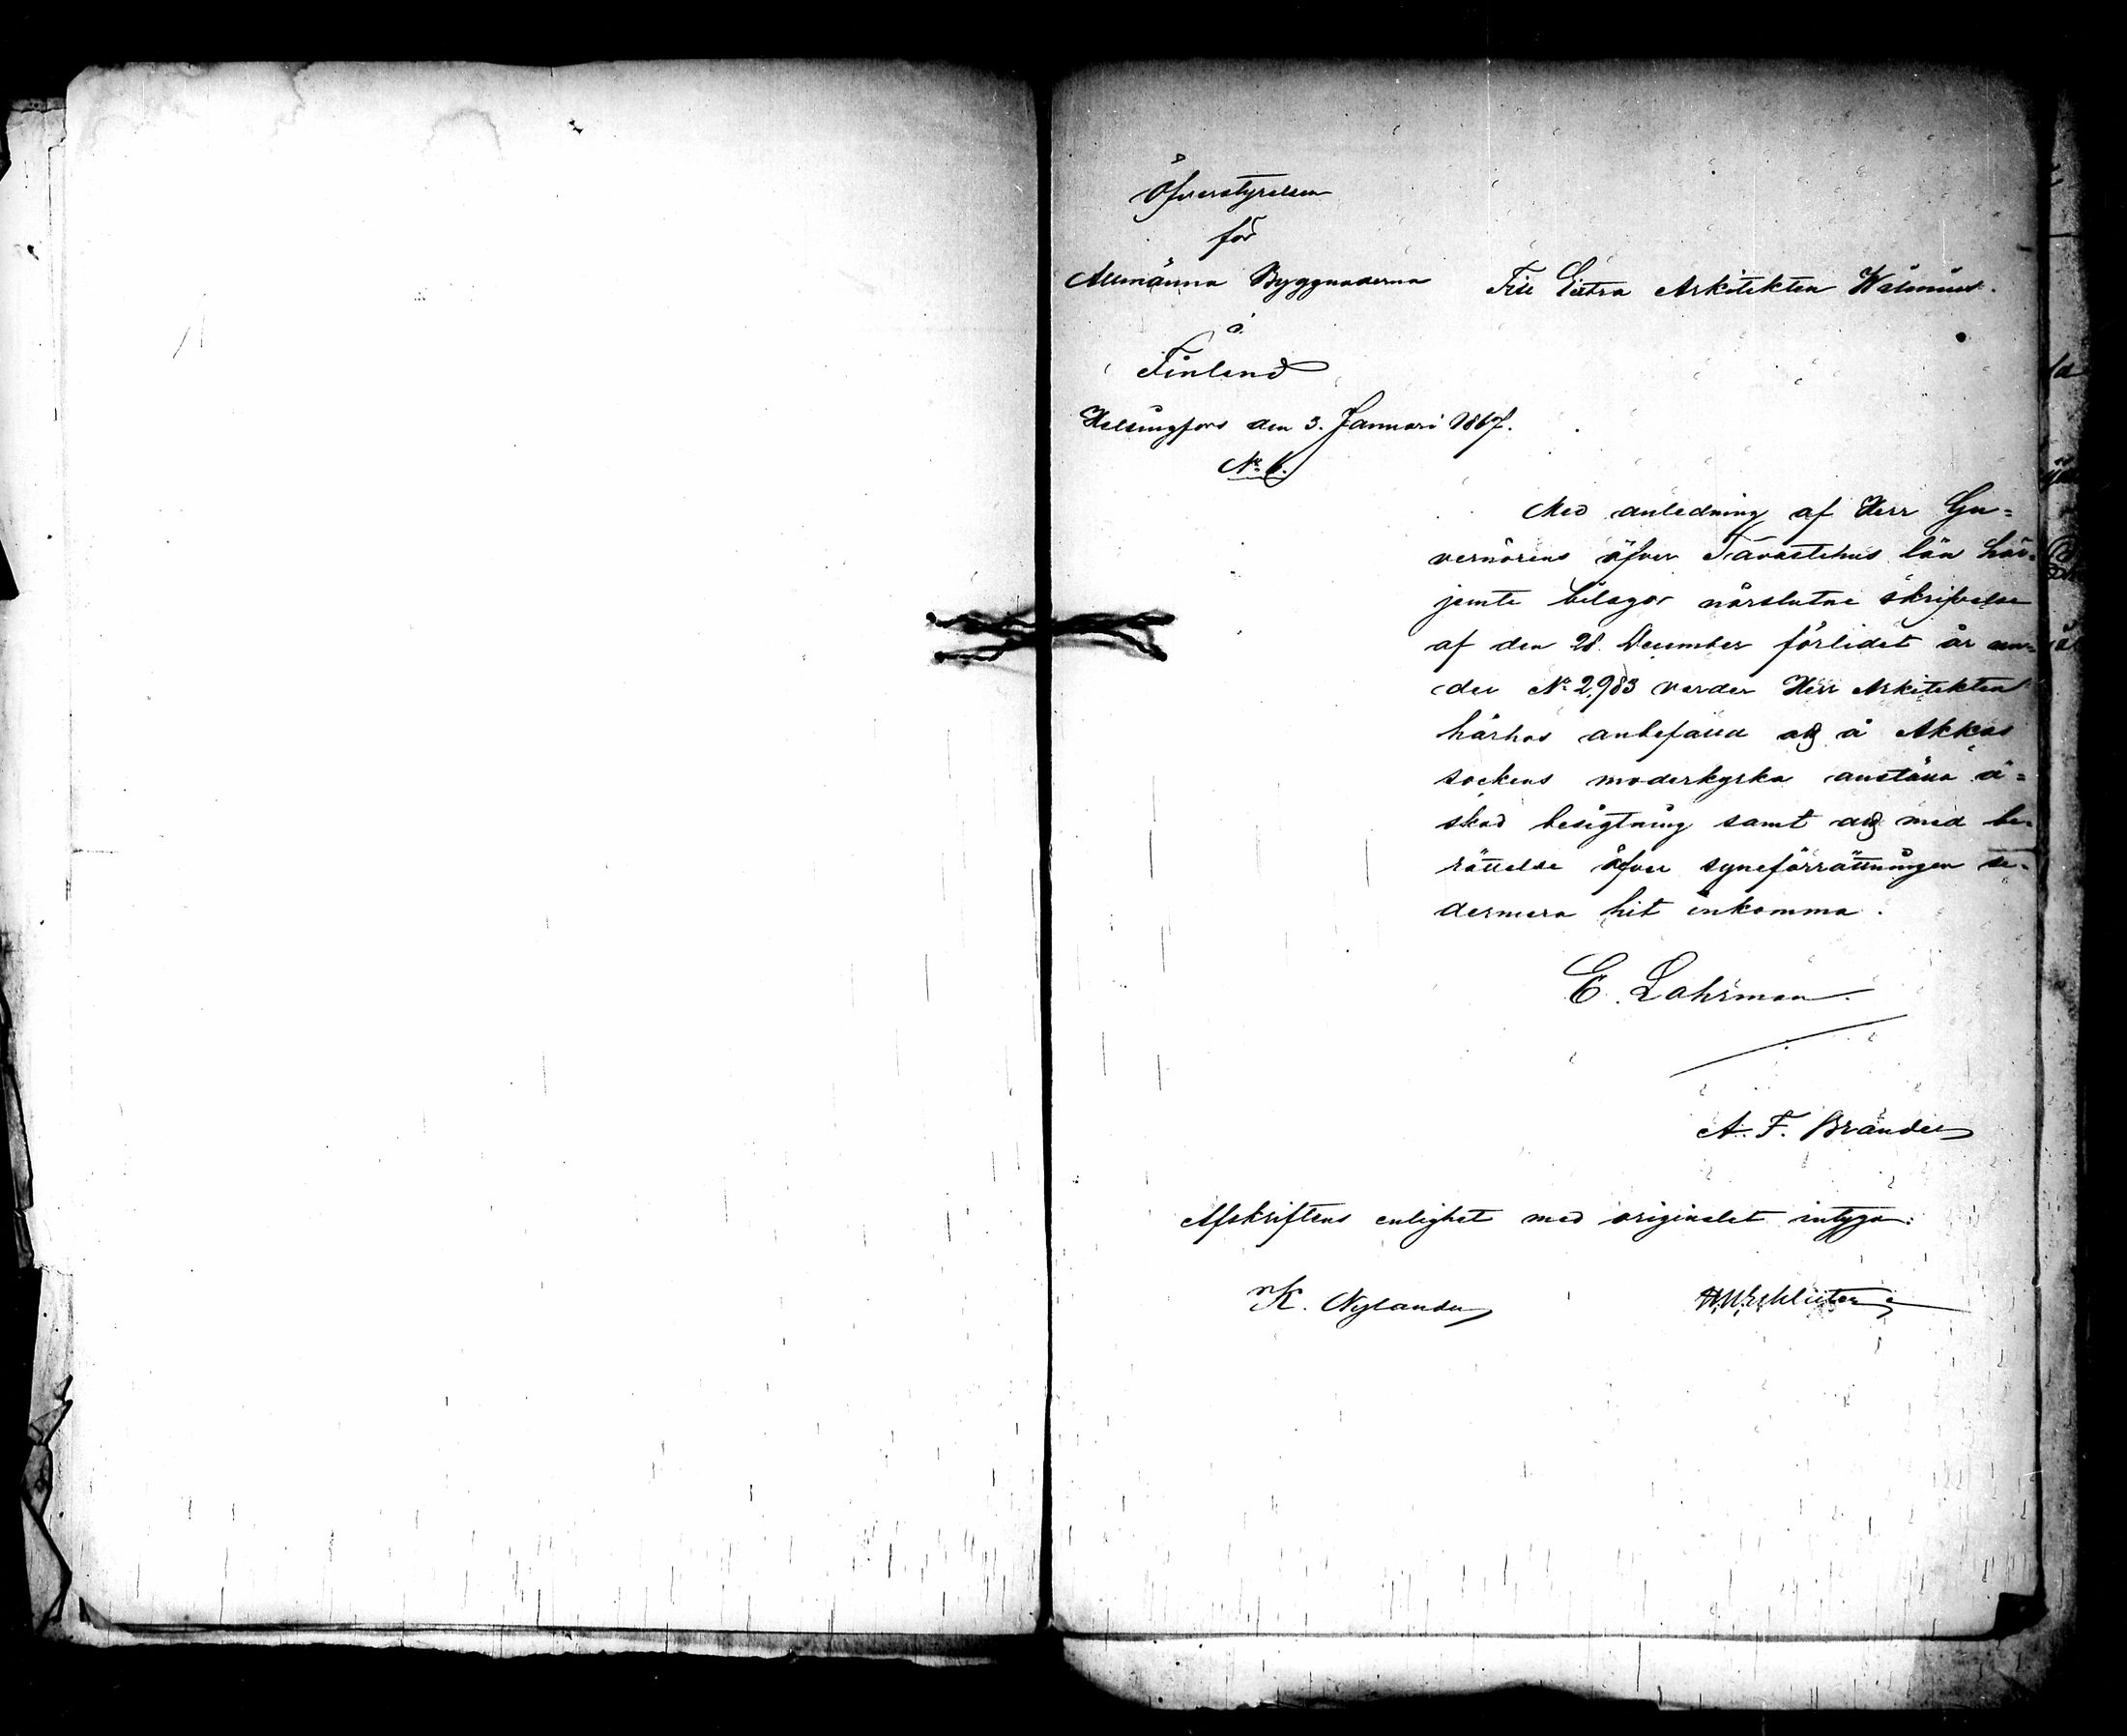 Öfverstyrelsen
för
Allmänna Byggnaderna
i
Finland
Helsingfors den 3. Januari 1867.
No 6.
Till Extra Arkitekten Wålenius.
Med anledning af Herr Gu=
vernörens öfver Tavastehus län här=
jemte bilagor närslutne skrifvelse
af den 28. December förlidet år un=
der No 2,983 varder Herr Arkitekten
härhos anbefalld att å Akkas
sockens moderkyrka anställa ä=
skad besigtning samt att med be=
rättelse öfver syneförrättningen se=
dermera hit inkomma.
E. Lohrman.
A. F. Brander
Afskriftens enlighet med originalet intyga:
K. Nylander